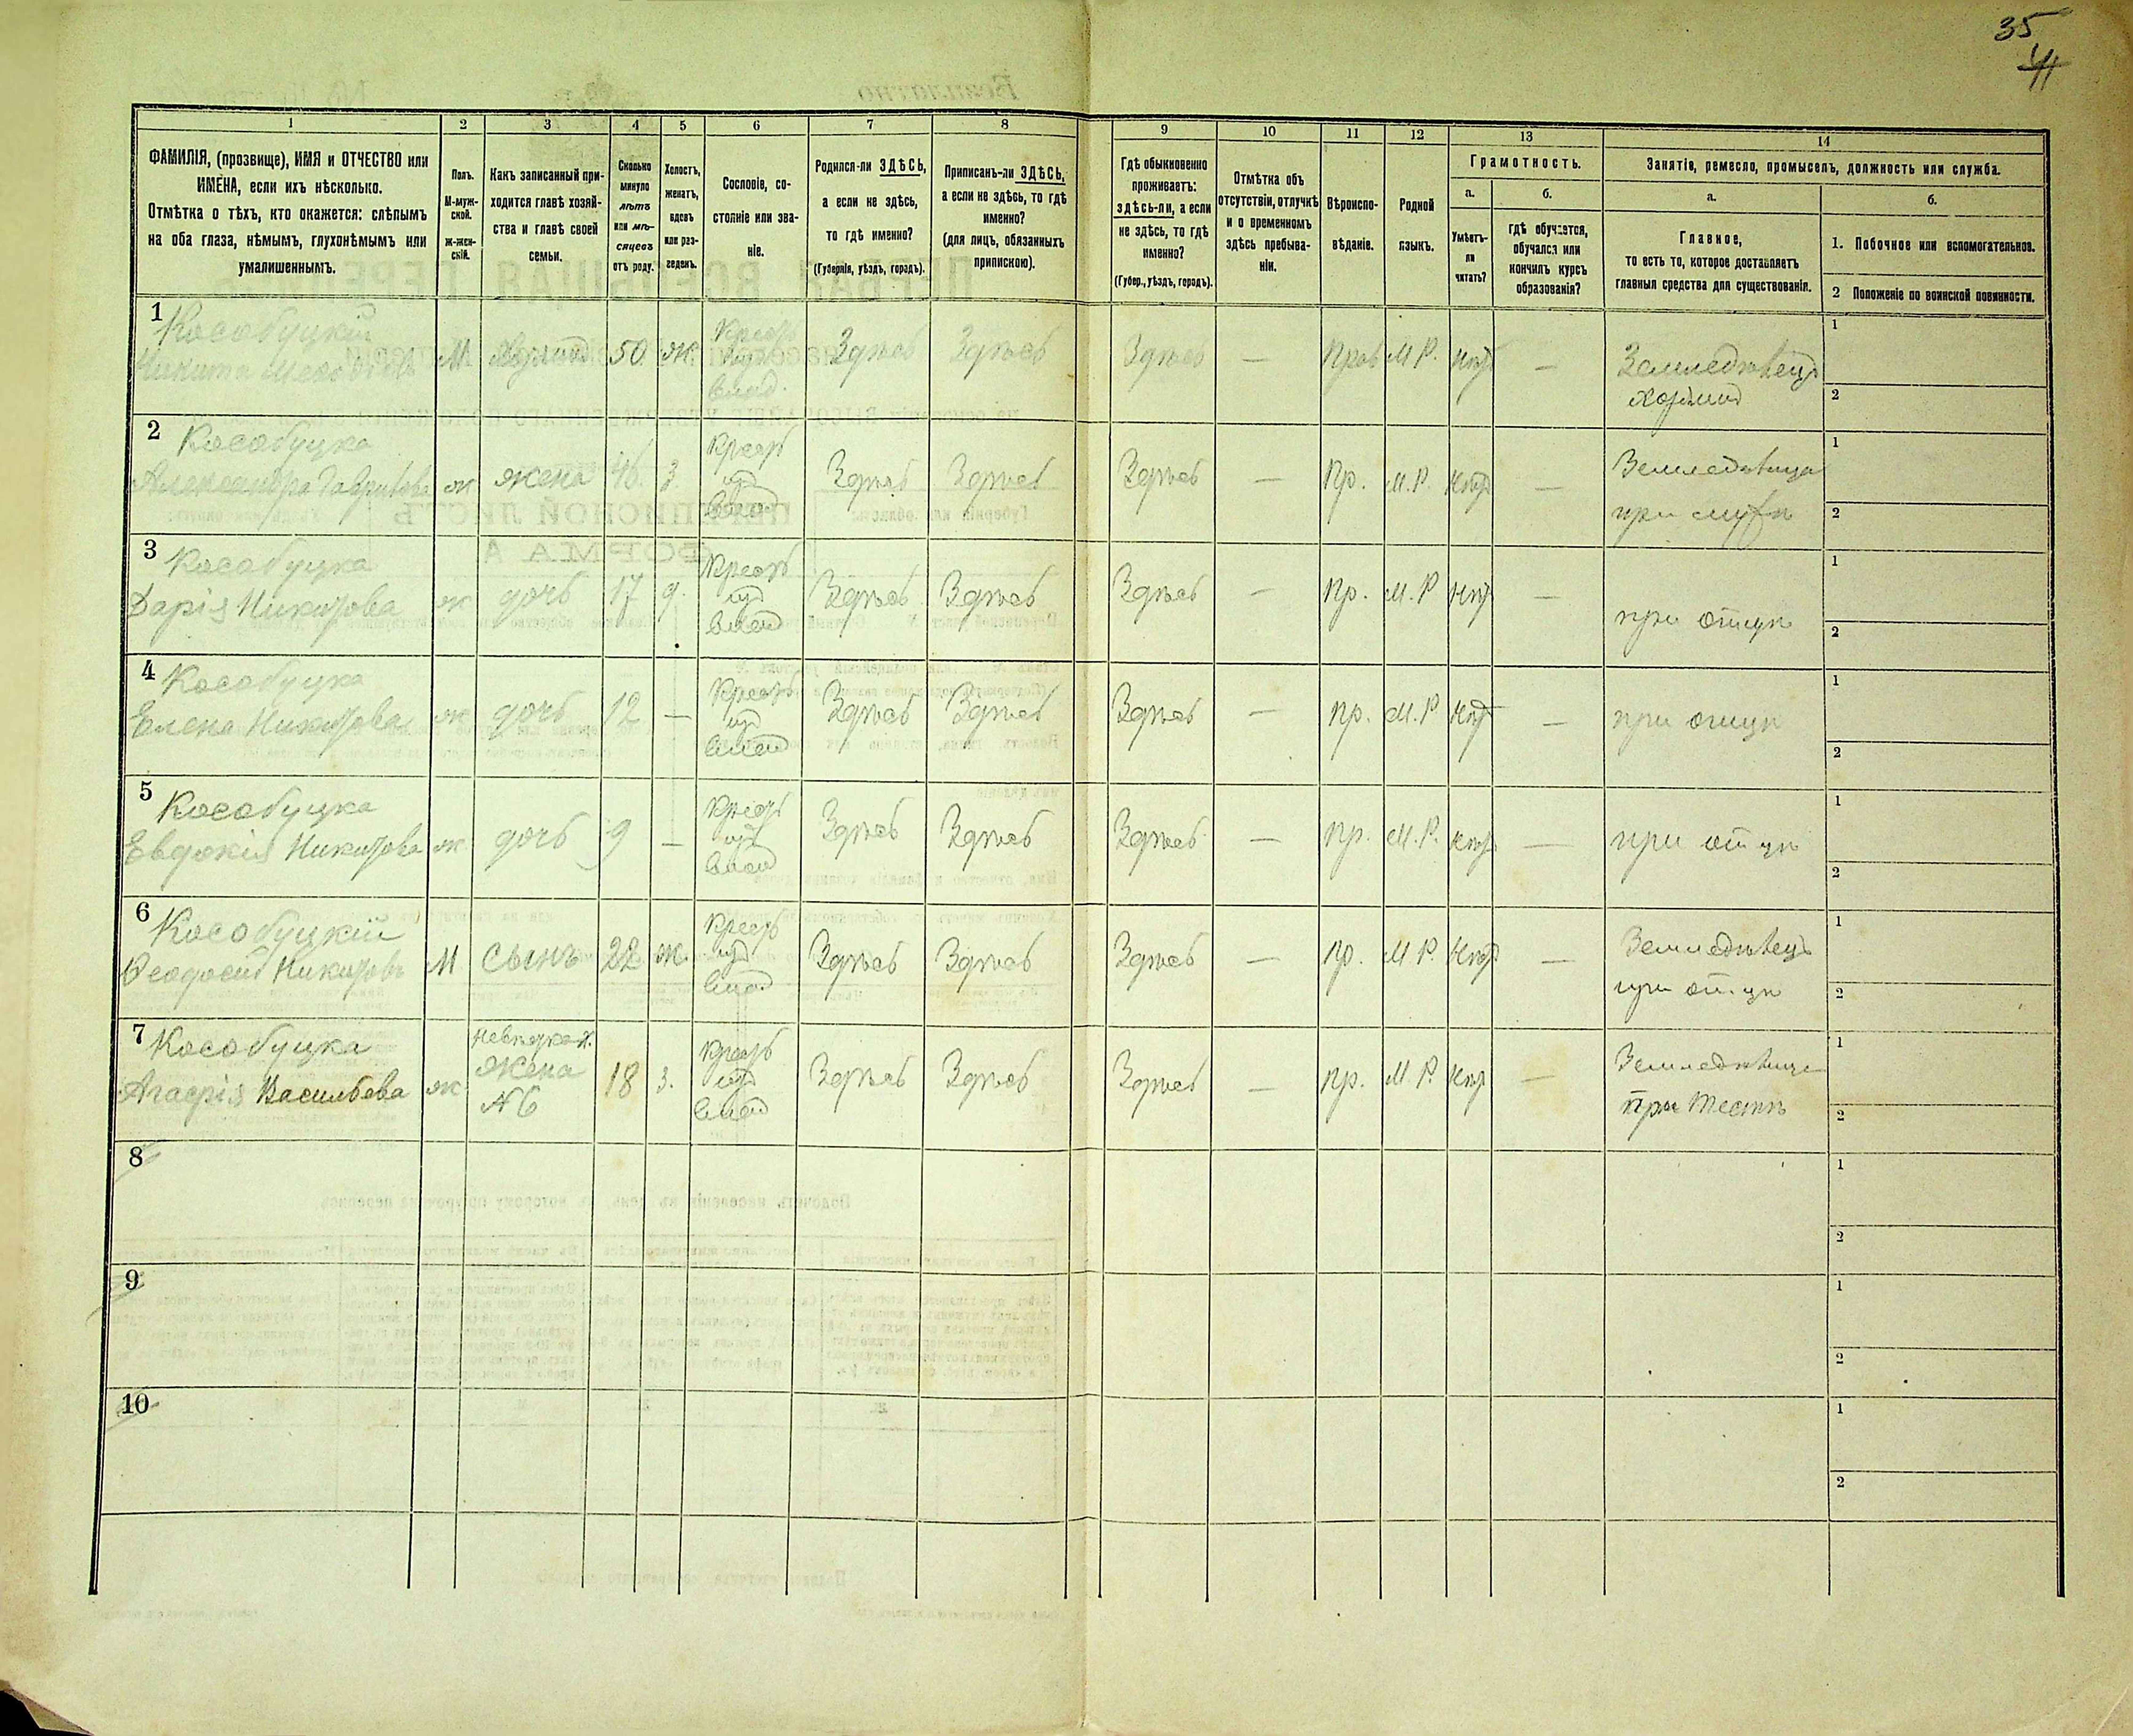 35
41
1
2
3
4
5
6
7
8
9
10
11
12
13
14
ФАМИЛІЯ, (прозвище), ИМЯ и ОТЧЕСТВО или
ИМЕНА, если ихъ нѣсколько.
Отмѣтка о тѣхъ, кто окажется: слѣпымъ
на оба глаза, нѣмымъ, глухонѣмымъ или
умалишеннымъ.
Полъ.
М-муж-
ской.
ж-жен-
скій.
Какъ записанный при-
ходится главѣ хозяй-
ства и главѣ своей
семьи.
Сколько
минуло
лѣтъ
или мѣ-
сяцевъ
отъ роду.
Холостъ,
женатъ,
вдовъ
или раз-
веденъ.
Сословіе, со-
стояніе или зва-
ніе.
Родился-ли ЗДѢСЬ,
а если не здѣсь,
то гдѣ именно?
(Губернія, уѣздъ, городъ).
Приписанъ-ли ЗДѢСЬ,
а если не здѣсь, то гдѣ
именно?
(для лицъ, обязанныхъ
припискою).
Гдѣ обыкновенно
проживаетъ:
здѣсь-ли, а если
не здѣсь, то гдѣ
именно?
(Губер., уѣздъ, городъ).
Отмѣтка объ
отсутствіи, отлучкѣ
и о временномъ
здѣсь пребыва-
ніи.
Вѣроиспо-
вѣданіе.
Родной
языкъ.
Грамотность.
а.
б.
Умѣетъ-
ли
читать?
гдѣ обучается,
обучался или
кончилъ курсъ
образованія?
Занятіе, ремесло, промыселъ, должность или служба.
а.
б.
Главное,
то есть то, которое доставляетъ
главныя средства для существованія.
1. Побочное или вспомогательное.
2 Положеніе по воинской повинности.
1
Кособуцкій
Никита
М
50
ж.
Здѣсь
Здѣсь
Здѣсь
—
Прав
М.Р.
Нѣтъ
—
Земледѣлецъ
1
2
2
Кособуцка
Александра Гаврилова
ж
жена
46.
З.
Здѣсь
Здѣсь
Здѣсь
—
Пр.
М.Р.
Нѣтъ
—
Земледѣлица
при мужѣ
1
2
3
Кособуцка
Дарія Никитова
ж
дочь
17
д.
Здѣсь
Здѣсь
Здѣсь
—
Пр.
М.Р
Нѣтъ
—
при отцѣ
1
2
4
Кособуцка
Елена Никитова
ж
дочь
12
—
Здѣсь
Здѣсь
Здѣсь
—
пр.
М.Р
Нѣтъ
—
при отцѣ
1
2
5
Кособуцка
Евдокія Никитова
ж
дочь
9
—
Здѣсь
Здѣсь
Здѣсь
—
пр.
М.Р.
Нѣтъ
—
при отцѣ
1
2
6
Кособуцкій
Ѳеодосій Никитовъ
М
сынъ
22
ж.
Здѣсь
Здѣсь
Здѣсь
—
пр.
М Р.
Нѣтъ
—
Земледѣлецъ
при отцѣ
1
2
7
Кособуцка
Агафія Васильева
ж
невѣстка
жена
№6
18
З.
Здѣсь
Здѣсь
Здѣсь
—
пр.
М Р.
Нѣтъ
—
Земледѣлица
При тестѣ
1
2
8
1
2
9
1
2
10
1
2